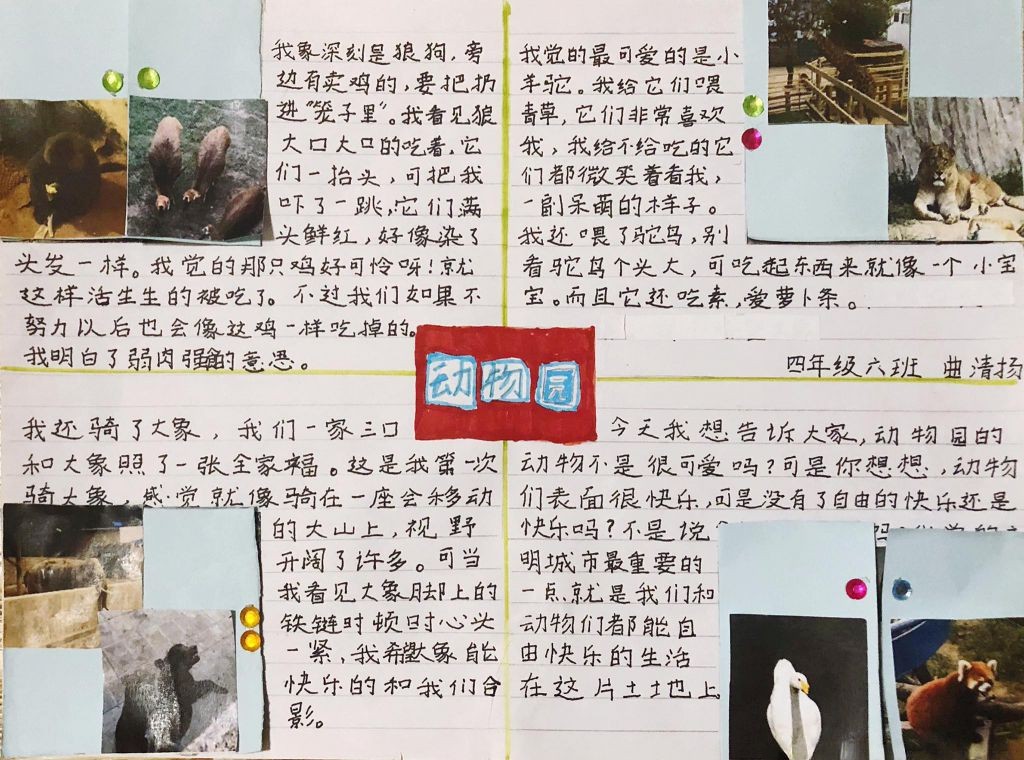 我象深刻是狼狗，旁
边有卖鸡的，要把扔
进“笼子里”。我看见狼
大口大口的吃着，它
们一抬头，可把我
吓了一跳，它们满
头鲜红，好像染了
头发一样。我觉的那只鸡好可怜呀！就
这样活生生的被吃了。不过我们如果不
努力以后也会像这鸡一样吃掉的。
我明白了弱肉强食的意思。
我觉的最可爱的是小
羊驼。我给它们喂
青草，它们非常喜欢
我，我给不给吃的它
们都微笑着看我，
一副呆萌的样子。
我还喂了驼鸟，别
看驼鸟个头大，可吃起东西来就像一个小宝
宝。而且它还吃素，爱萝卜条。
四年级六班 曲清扬
动物园
我还骑了大象，我们一家三口
和大象照了一张全家福。这是我第一次
骑大象，感觉就像骑在一座会移动
的大山上，视野
开阔了许多。可当
我看见大象脚上的
铁链时顿时心头
一紧，我希望大象能
快乐的和我们合
影。
今天我想告诉大家，动物园的
动物不是很可爱吗？可是你想想，动物
们表面很快乐，可是没有了自由的快乐还是
快乐吗？不是说
明城市最重要的
一点就是我们和
动物们都能自
由快乐的生活
在这片土地上